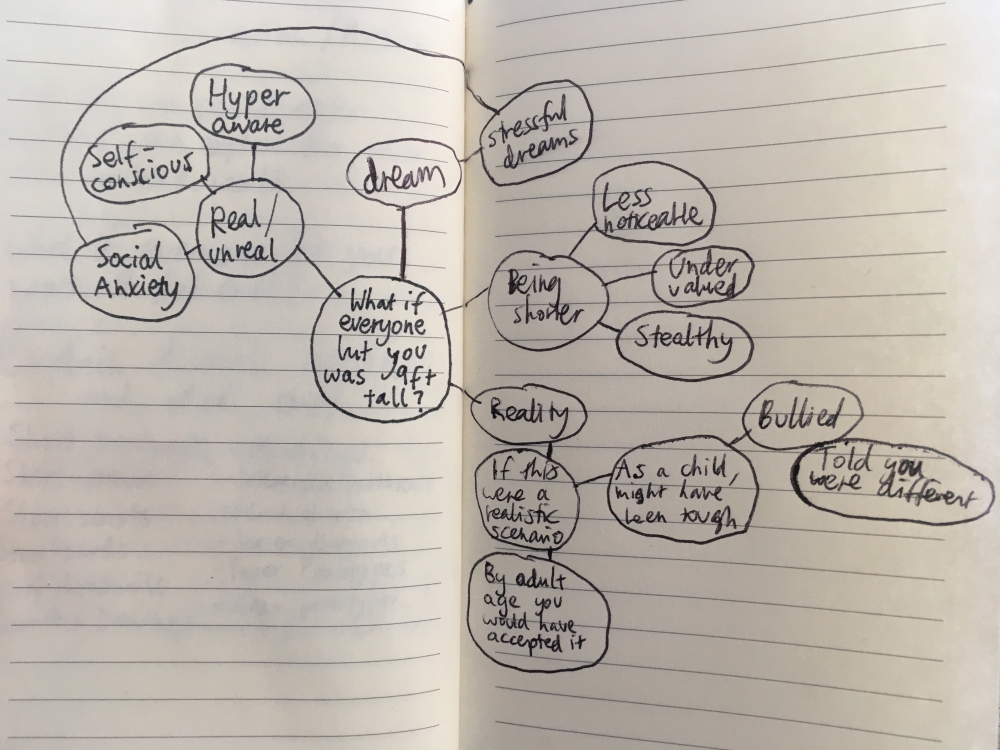 Hyper
aware
Self-
conscious
Real/
unreal
Social
Anxiety
dream
stressful
dreams
What if
everyone
but you
was 9ft
tall?
Less
noticeable
Being
shorter
Under
valued
Stealthy
Reality
If this
were a
realistic
scenario
As a child,
might have
been tough
Bullied
Told you
were different
By adult
age you
would have
accepted it